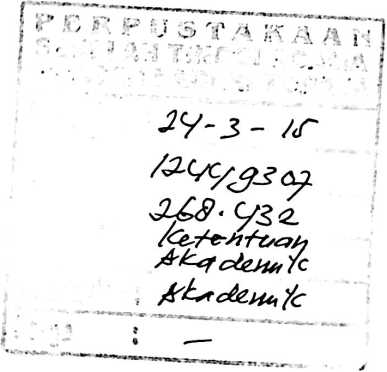 PERPUSTAKAAN
24-3-15
12449307
268.432
Ketentuan
Akademik
Akademik
: -